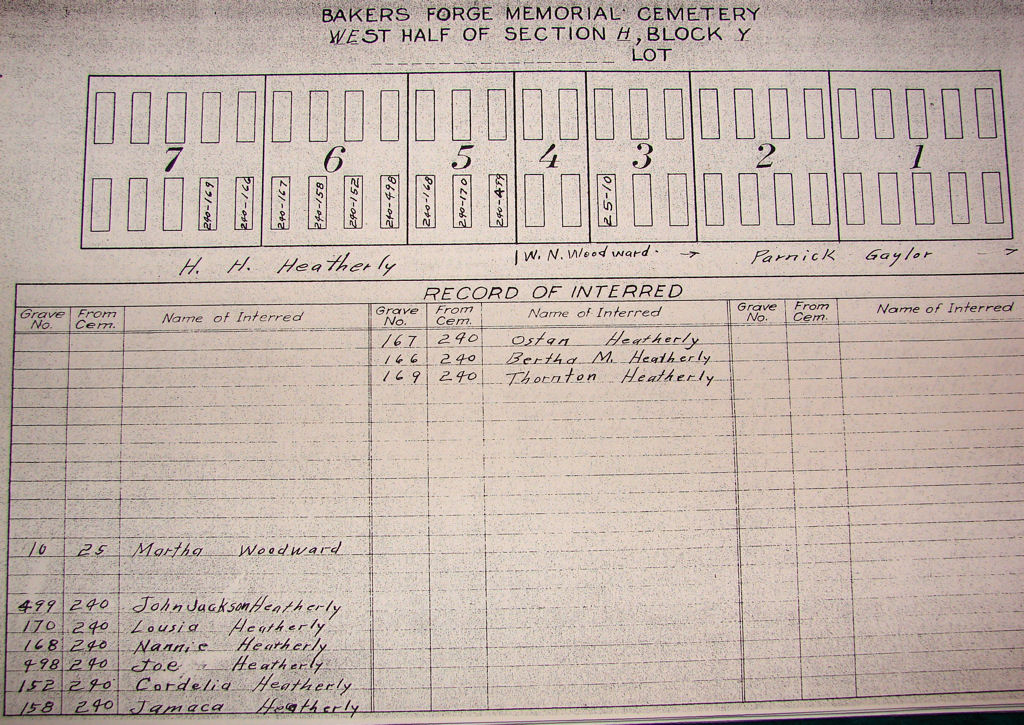 BAKERS FORGE MEMORIAL CEMETERY
WEST HALF OF SECTION H, BLOCK Y
LOT
7 6 5 4 3 2 1
240-169 240-166 240-167 240-158 240-152 240-498 240-168 240-170 240-499 25-10
H. H. Heatherly W. N. Woodward. → Parnick Gaylor →
RECORD OF INTERRED
Grave No. From Cem. Name of Interred Grave No. From Cem. Name of Interred Grave No. From Cem. Name of Interred
167 240 Ostan Heatherly
166 240 Bertha M. Heatherly
169 240 Thornton Heatherly
10 25 Martha Woodward
499 240 John Jackson Heatherly
170 240 Lousia Heatherly
168 240 Nannie Heatherly
498 240 Joe Heatherly
152 240 Cordelia Heatherly
158 240 Jamaca Heatherly